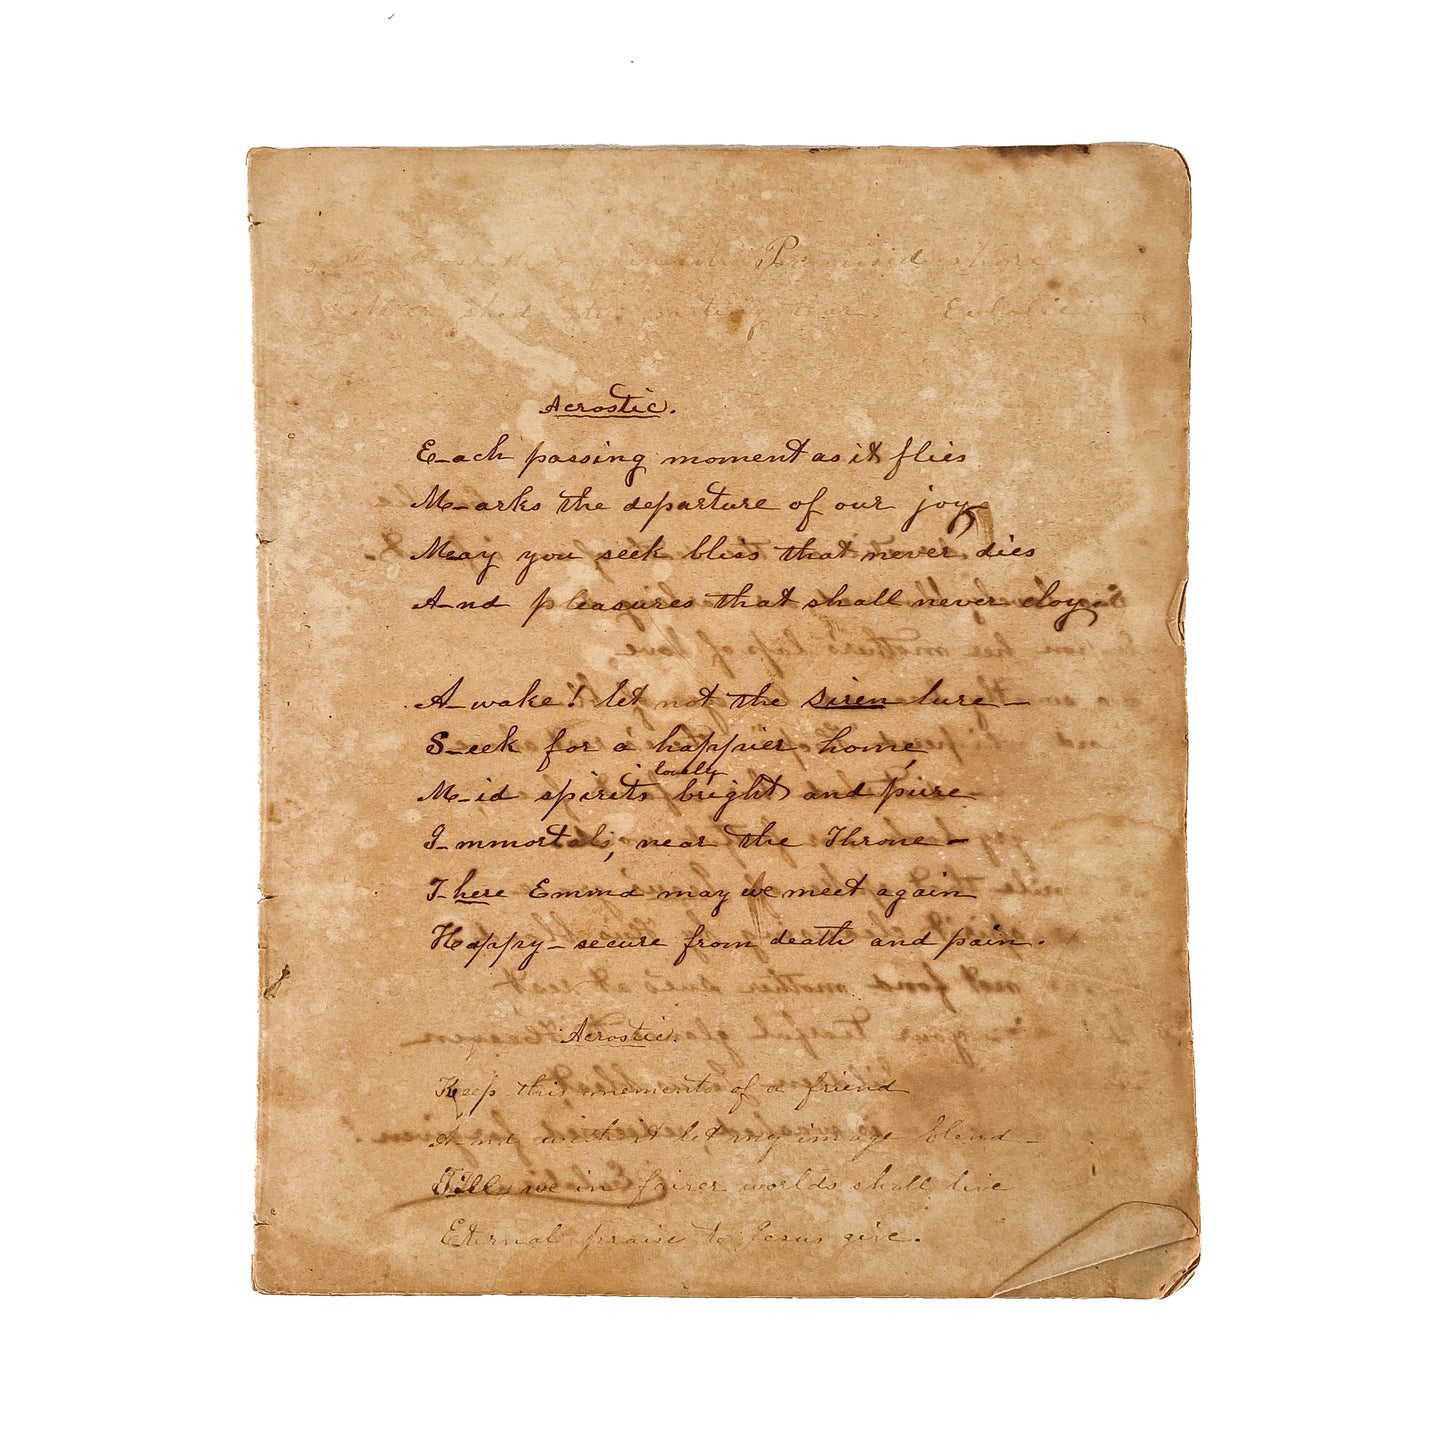 shed the parting tear. Eulalia
Acrostic.
E-ach passing moment as it flies
M-arks the departure of our joy,
M-ay you seek bliss that never, dies
A-nd pleasures that shall never cloy,
A-wake! let not the siren lure-
S-eek for a happier home,
lovely
M-id spirits bright and pure-
I-mmortals, near the Throne-
T-here Emma may we meet again
Happy- secure from death and pain.
Acrostic.
Keep this memento of a friend
And with it let my image blend-
Till we in fairer worlds shall live
Eternal praise to Jesus give.